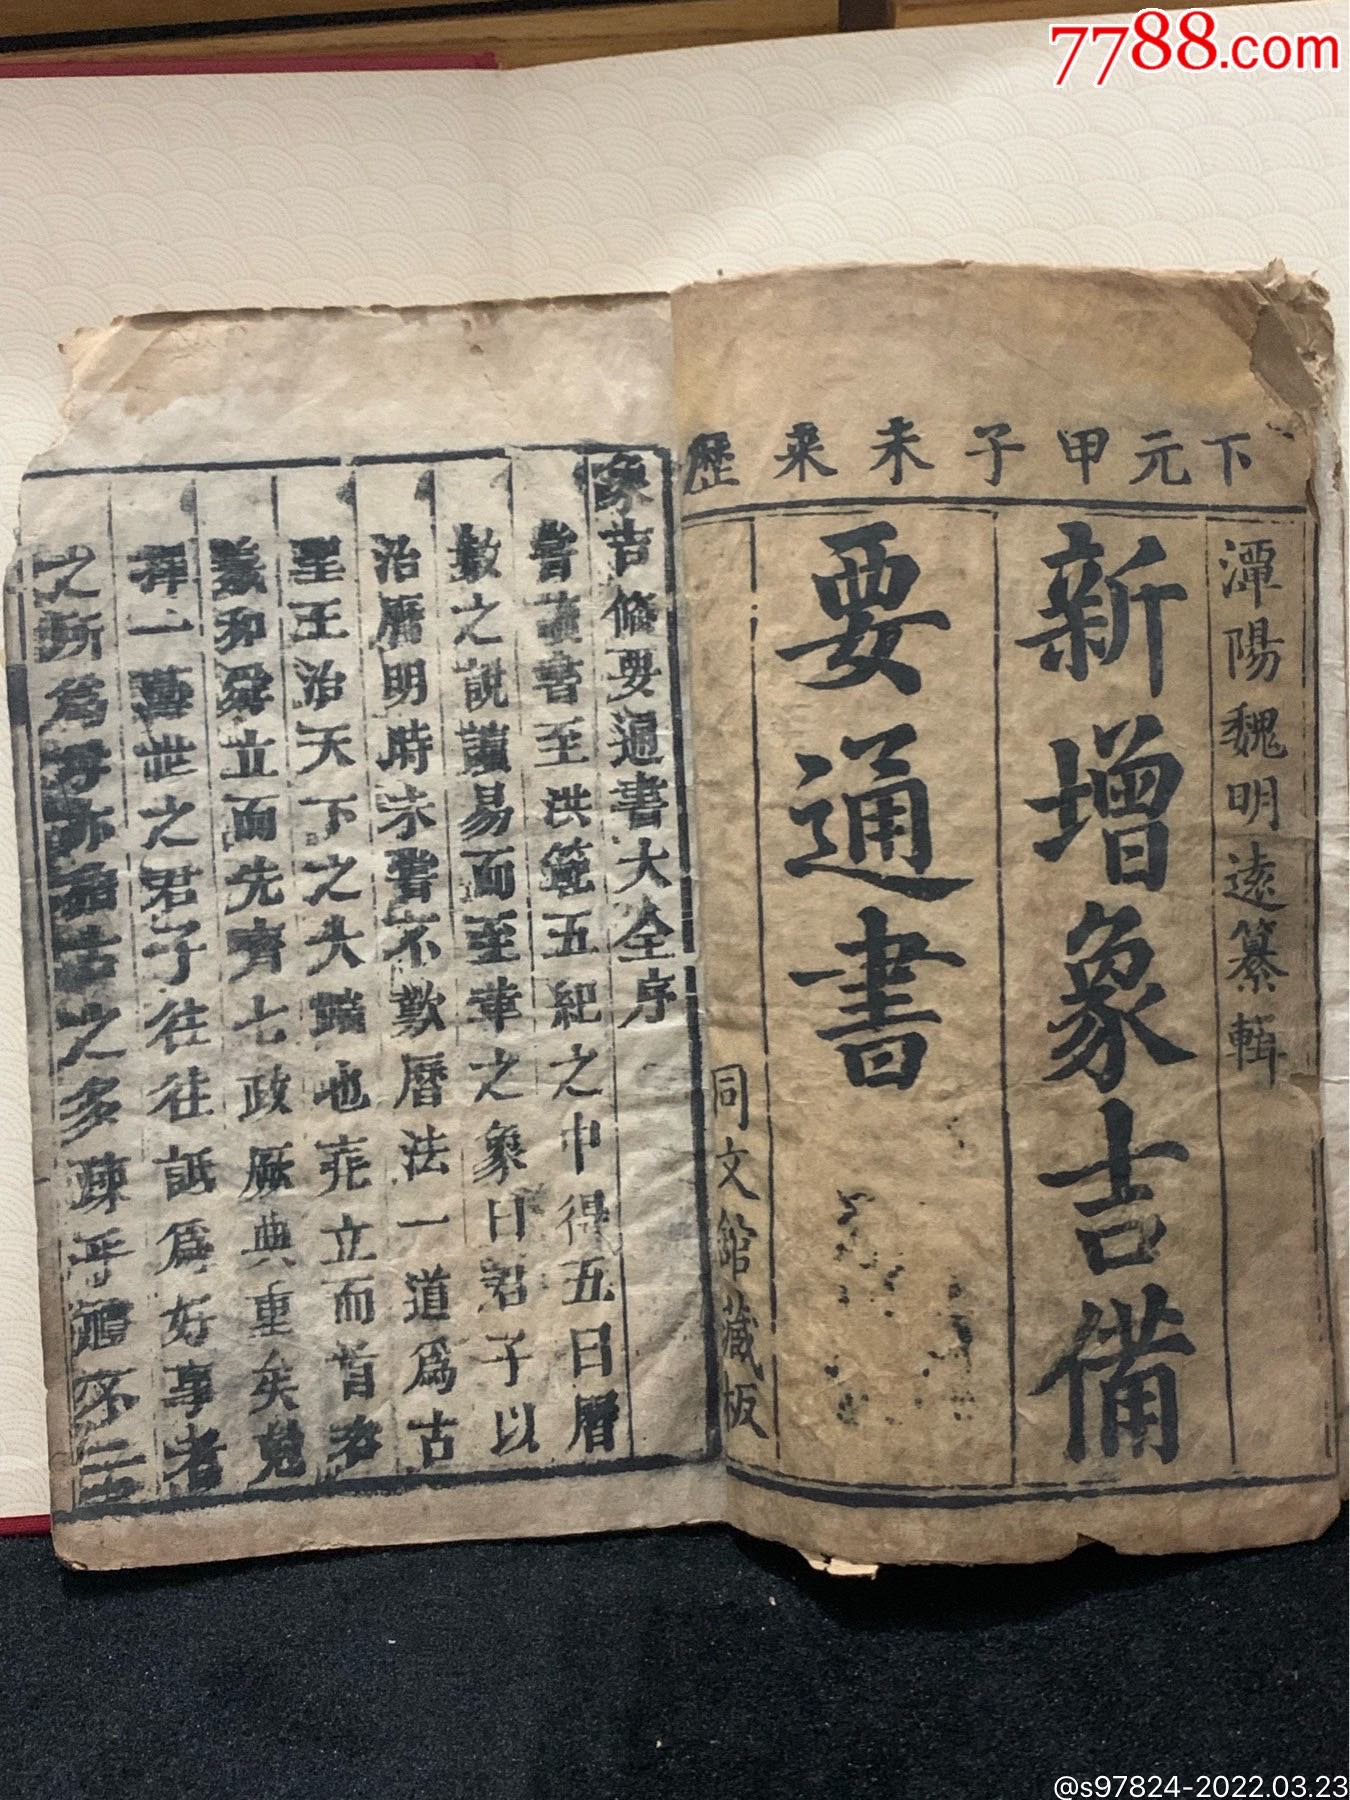 7788.com
下元甲子未来歷
潭陽魏明遠纂輯
新增象吉備
要通書
同文館藏板
象吉俻要通書大全序
嘗讀書至洪範五紀之中得五曰曆
數之說讀易而至革之象曰君子以
治曆明時未嘗不歎曆法一道爲古
聖王治天下之大
也
立而首
羲和舜立而先齊七政厥典重矣
一
世之君子往往詆爲好事者
之所爲
之多疎乎
@s97824-2022.03.23